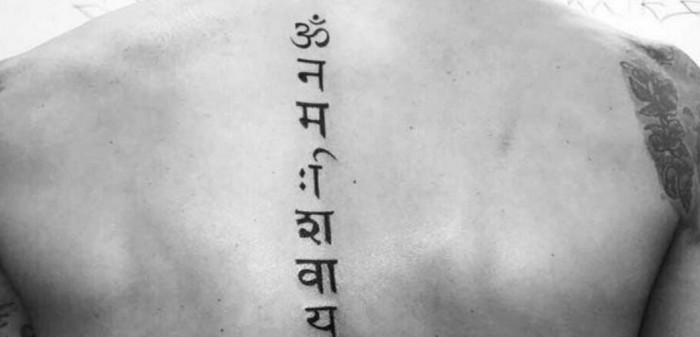 ॐ
न
म
ःि
श
वा
य